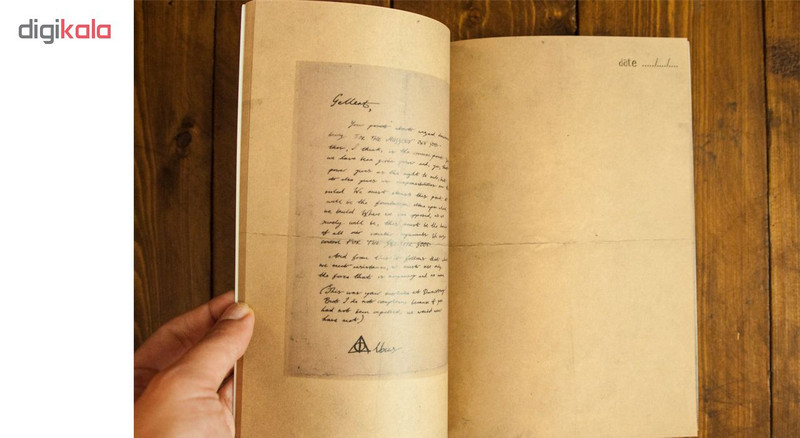 digikala
Gellert,
Your point about wizard
being FOR THE MUGGLES' OWN GOO-
this, I think, is the crucial point. Y
we have been given power and, yes, tha
power gives us the right to rule, but
it also gives us responsibilities over the
ruled. We must stress this point, it
will be the foundation stone upon which
we build. Where we are opposed, as we
surely will be, this must be the basis
of all our counter-arguments. We seize
control FOR THE GREATER GOOD.
And from this it follows that where
we must use only
the force that is necessary and no more.
(This was your mistake at Durmstrang!
But I do not complain, because if you
had not been expelled, we would never
have met.)
Albus
date ..../..../....